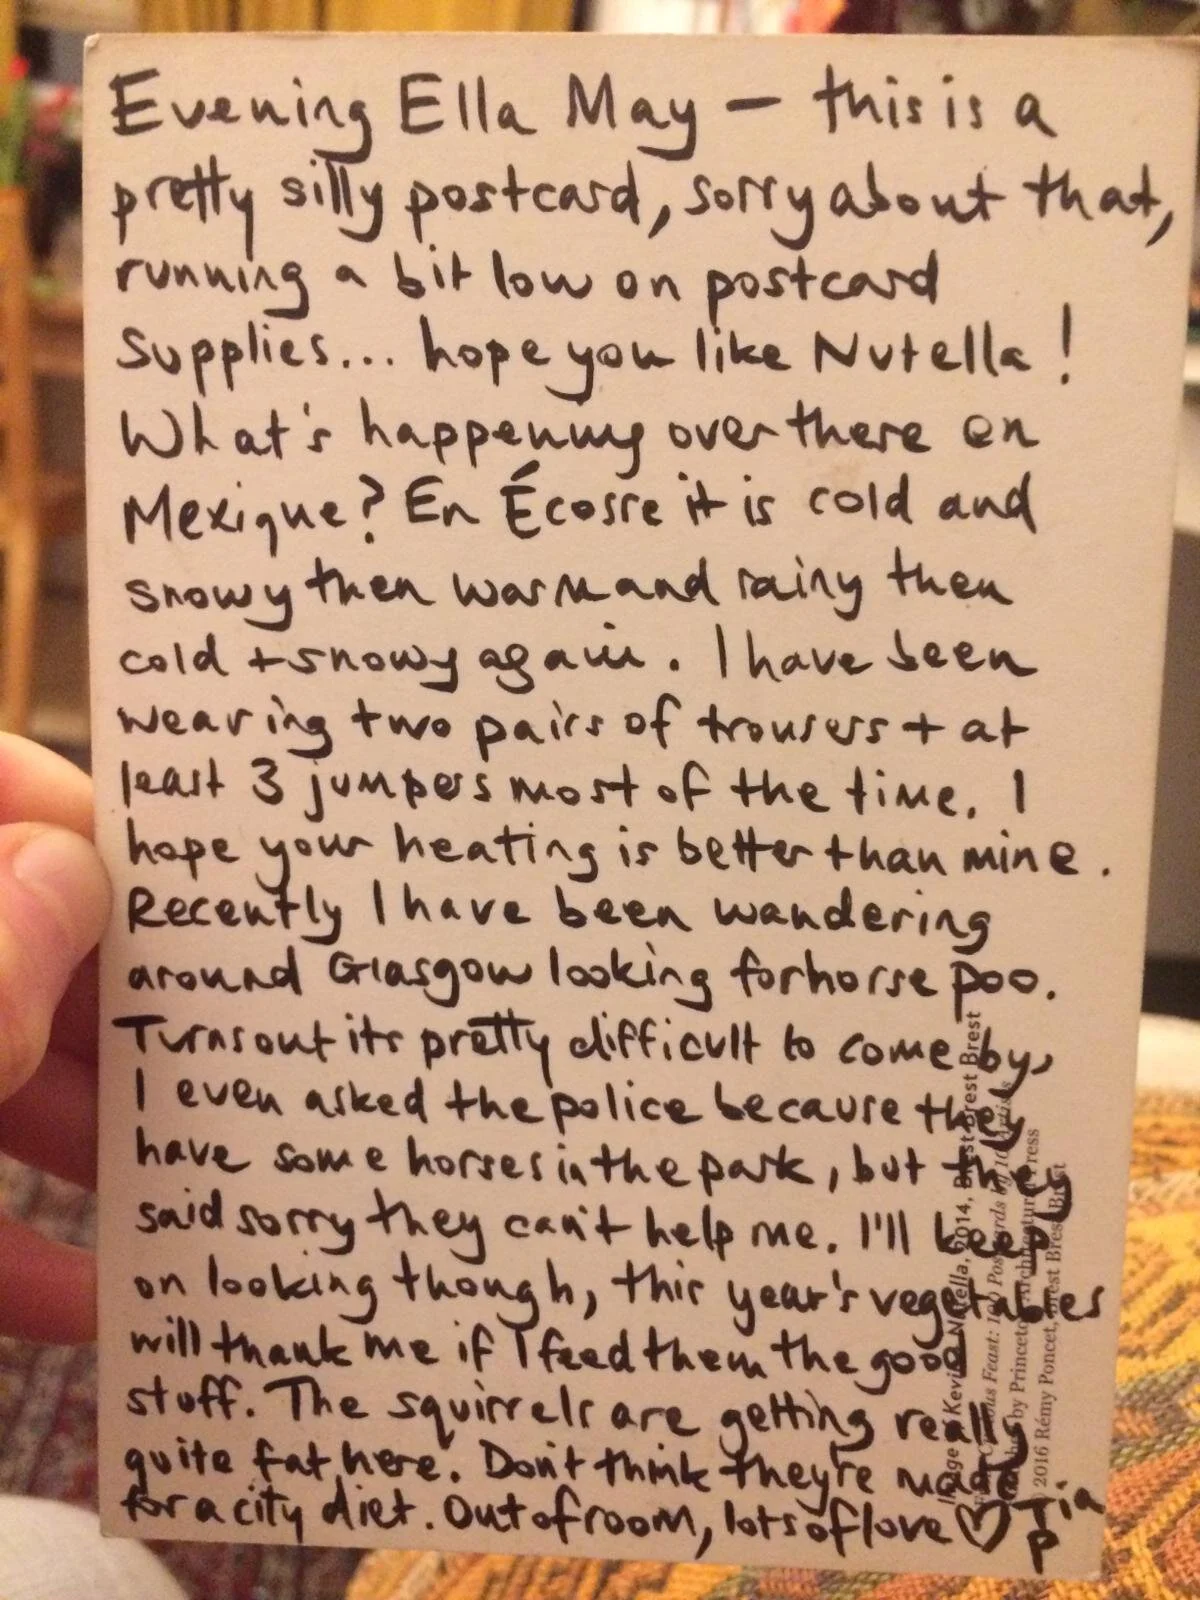 Evening Ella May – this is a
pretty silly postcard, sorry about that,
running a bit low on postcard
supplies... hope you like Nutella!
What's happening over there en
Mexique? En Écosse it is cold and
snowy then warm and rainy then
cold + snowy again. I have been
wearing two pairs of trousers + at
least 3 jumpers most of the time. I
hope your heating is better than mine.
Recently I have been wandering
around Glasgow looking for horse poo.
Turns out its pretty difficult to come by,
I even asked the police because they
have some horses in the park, but they
said sorry they can't help me. I'll keep
on looking though, this year's vegetables
will thank me if I feed them the good
stuff. The squirrels are getting really
quite fat here. Don't think they're made
for a city diet. Out of room, lots of love ♡ Tia
P
Kevin Nutella, 2014, Brest Brest Brest
Feast: 100 Postcards by 10 Artists
by Princeton Architectural Press
2016 Rémy Poncet, Brest Brest Brest